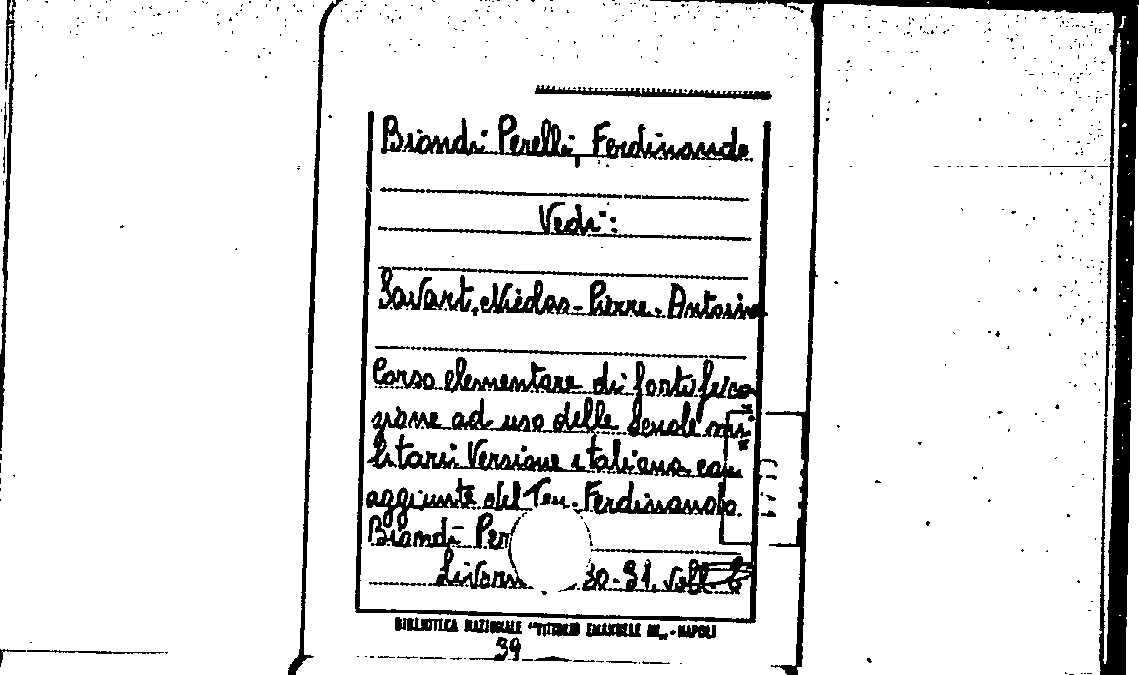 Biondi Perelli, Ferdinando
Vedi:
Savart, Nicolas-Pierre-Antoine
Corso elementare di fortifica
zione ad uso delle Scuole mi
litari Versione italiana con
aggiunte del Ten. Ferdinando
Biondi Per
Livorn 30-31. voll.
BIBLIOTECA NAZIONALE "VITTORIO EMANUELE III" - NAPOLI
39